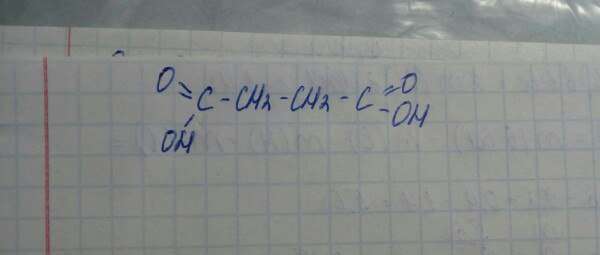 O
=C-CH2-CH2-C=O
OH -OH